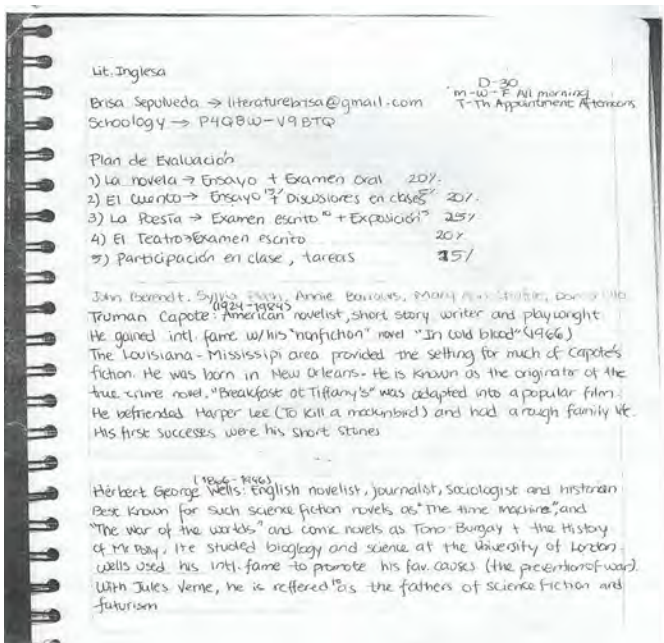 Lit. Inglesa
D-30
M-W-F All morning
Brisa Sepulveda → literaturebrisa@gmail.com T-Th Appointment Afternoons
Schoology → P4QBW-V9BTQ
Plan de Evaluación
1) La novela → Ensayo + Examen Oral 20%
2) El Cuento → Ensayo + Discusiones en clase 20%
3) La Poesía → Examen escrito + Exposición 25%
4) El Teatro → Examen escrito 20%
5) Participación en clase, tareas 15%
John Berendt, Sylvia Plath, Annie Barrows, Mary Ann
(1924-1984)
Truman Capote: American novelist, short story writer and playwright
He gained intl. fame w/his "nonfiction" novel "In cold blood" (1966)
The Louisiana-Mississipi area provided the setting for much of Capote's
fiction. He was born in New Orleans. He is known as the originator of the
true crime novel. "Breakfast at Tiffany's" was adapted into a popular film.
He befriended Harper Lee (To kill a mockinbird) and had a rough family life.
His first successes were his short stories
(1866-1946)
Herbert George Wells: English novelist, journalist, sociologist and historian
Best known for such science fiction novels as "The time machine", and
"The war of the worlds" and comic novels as Tono-Bungay + the History
of Mr Polly. He studied biology and science at the University of London.
Wells used his intl. fame to promote his fav. causes (the prevention of war).
With Jules Verne, he is reffered to as the fathers of science fiction and
futurism